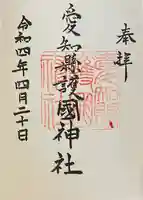 奉拝
愛知縣護國神社
令和四年四月二十日